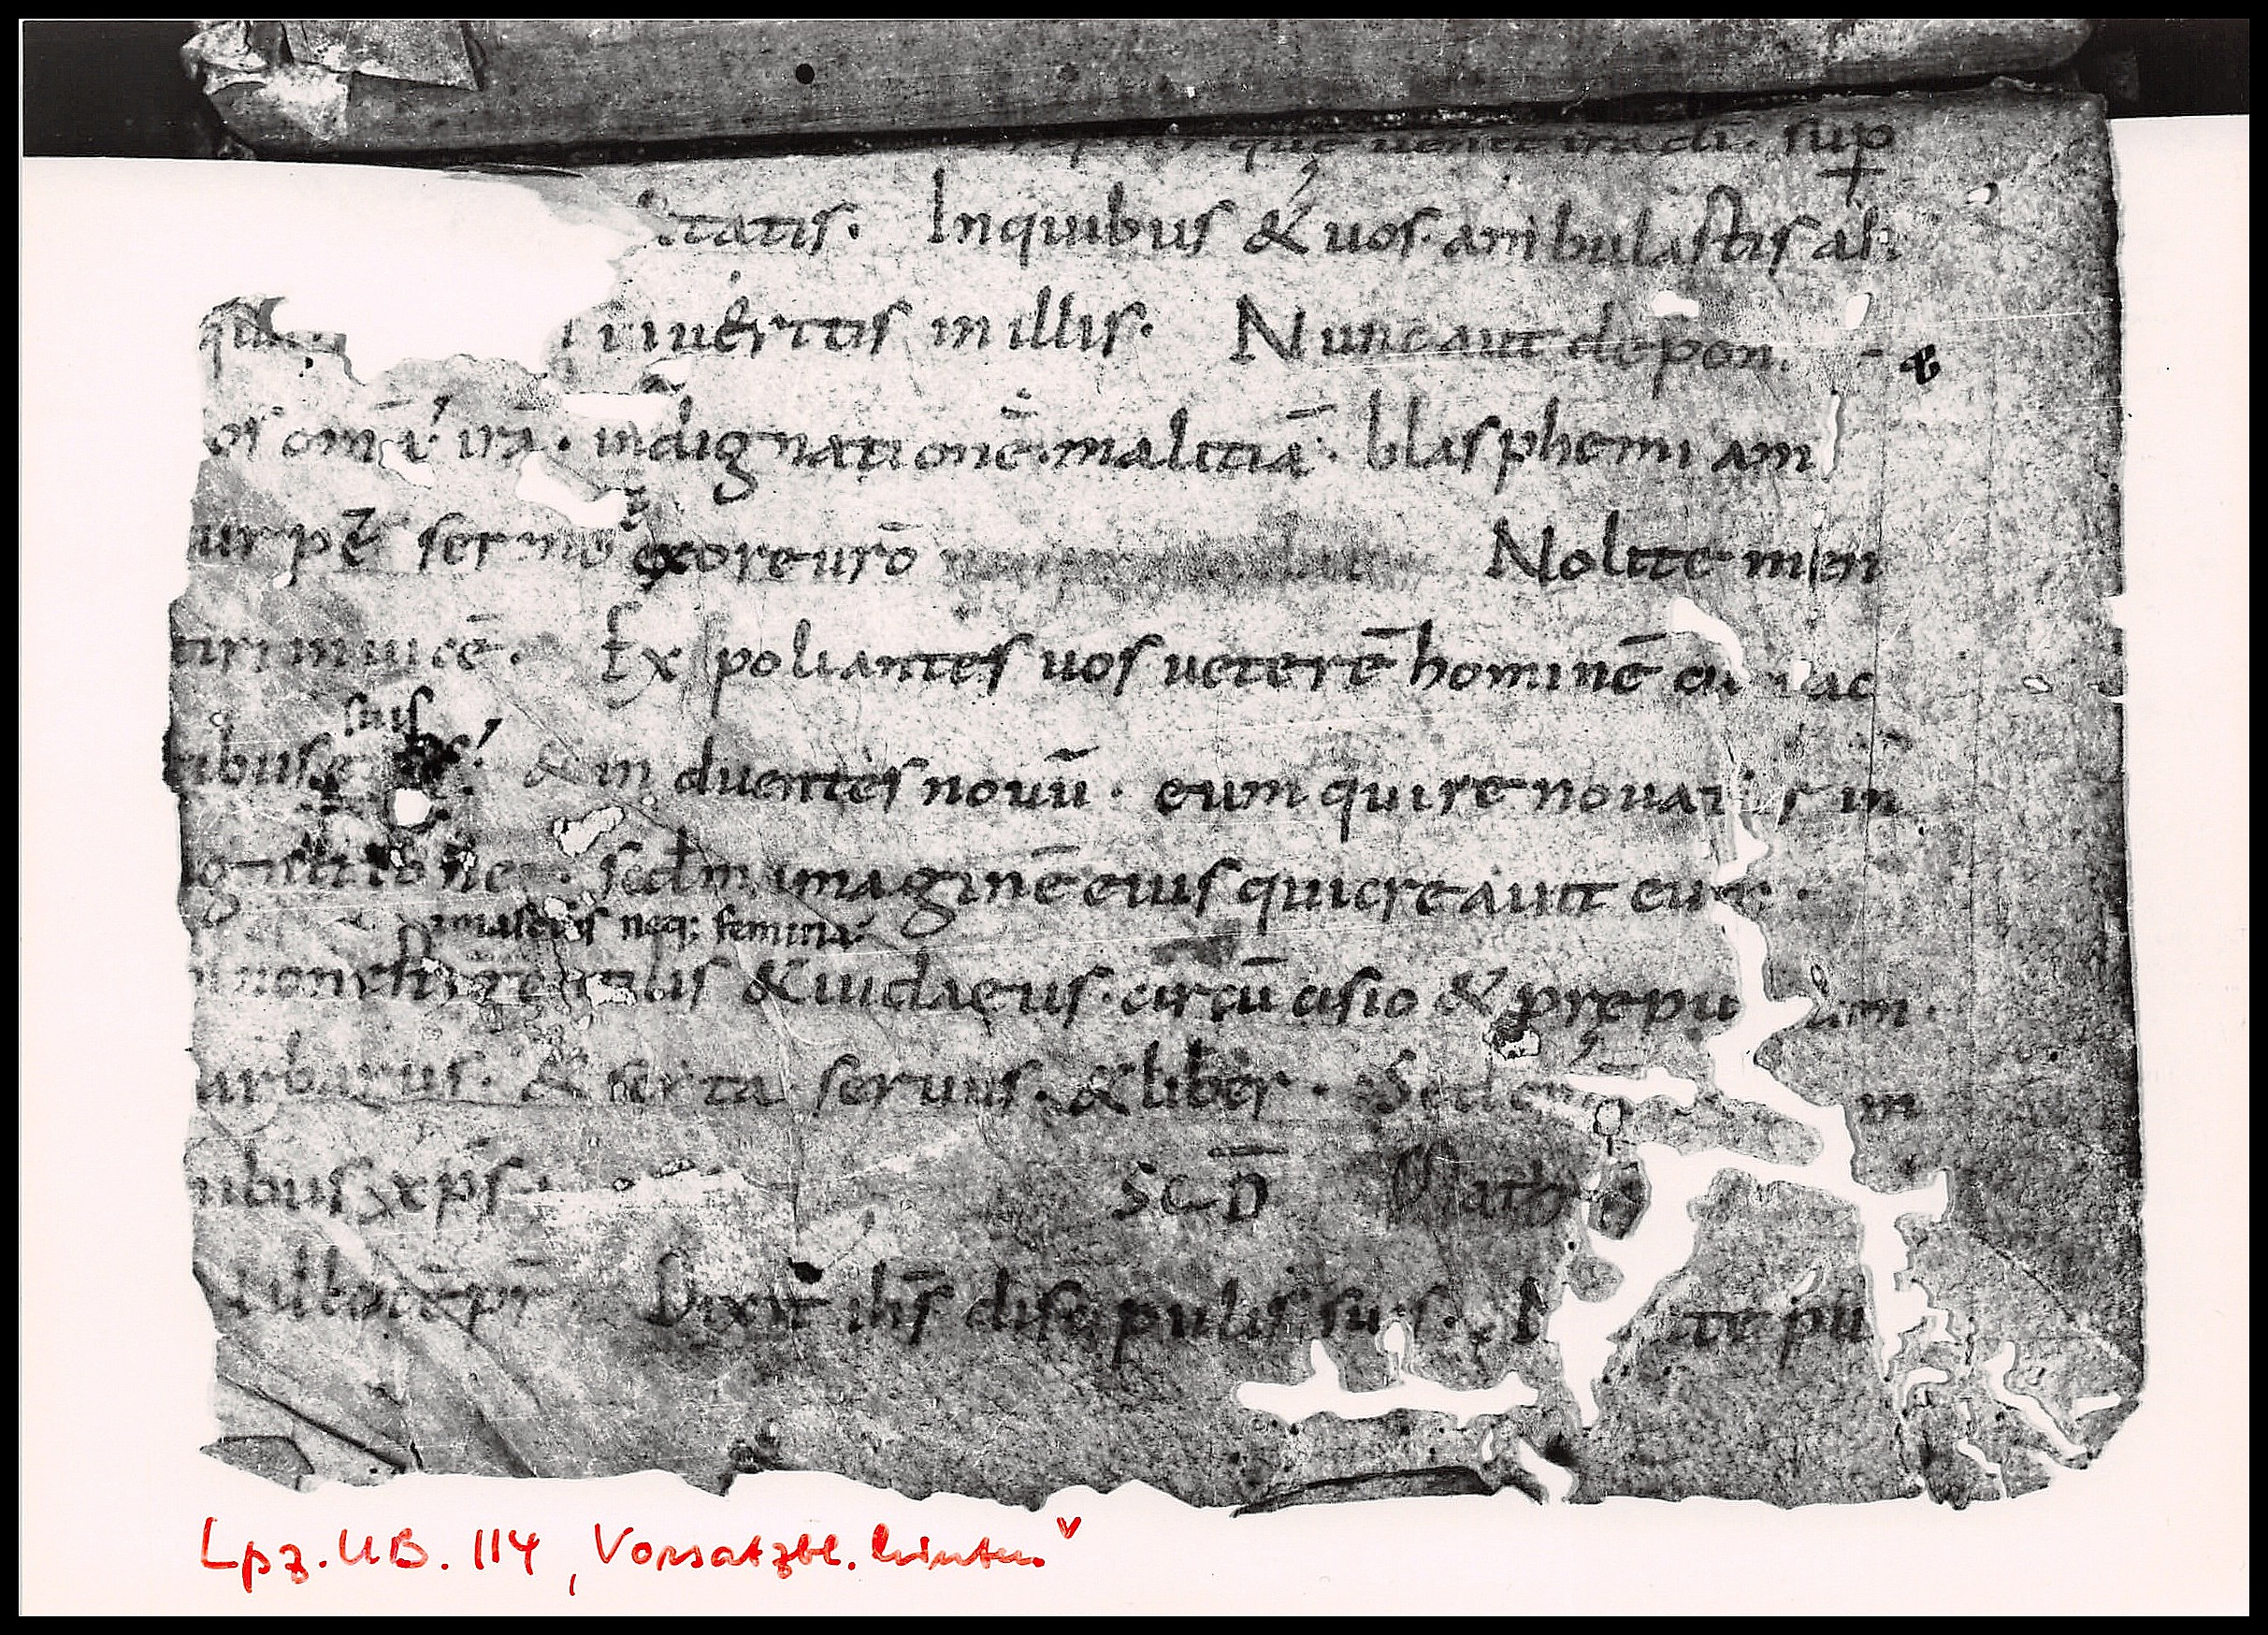 que uenit ira di. sup
itatis. Inquibus & uos. ambulastis ali
uiuertis in illis. Nunc aut depon
os omīa irā. indignationē. malitiā. blasphemiam
turpē sermo exore uro Nolite men
tiri inuicē. Expoliantes uos ueterē hominē ac
suis
tibus & induentes nouū. eum qui renouat in
ognitione. scdm imaginē eius qui creauit eum.
masculus neq; femina
non gentilis & iudaeus. circūcisio & prepu tium.
arbarus. & scita seruus. & liber. Sed in
nibus xps. SCD Matō
In illo tēpr Dixit ihs discipulis suis. N ite pu
Lpz. UB. 114, Vorsatzbl. hinten v